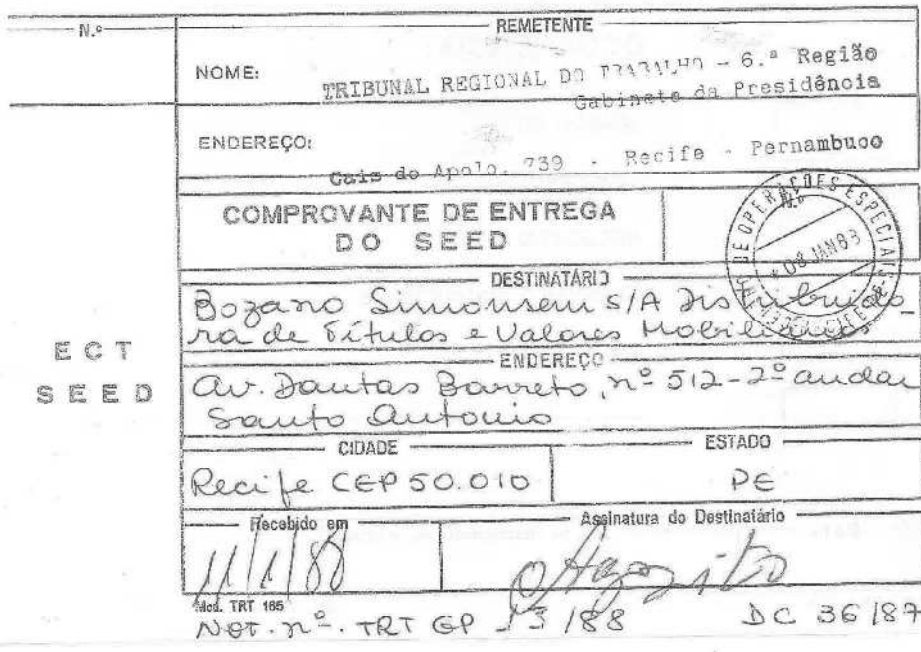 N.º
REMETENTE
NOME:
TRIBUNAL REGIONAL DO TRABALHO - 6.ª Região
Gabinete da Presidência
ENDEREÇO:
Cais do Apolo, 739 - Recife - Pernambuco
COMPROVANTE DE ENTREGA
DO SEED
N.º
DE OPERAÇÕES ESPECIAIS
08 JAN 88
DESTINATÁRIO
Bozano Simonsem S/A Distribuido-
ra de Títulos e Valores Mobiliários
ECT
SEED
ENDEREÇO
Av. Dantas Barreto, nº 512 - 2º andar
Santo Antonio
CIDADE
ESTADO
Recife CEP 50.010
PE
Recebido em
Assinatura do Destinatário
11/1/88
Mod. TRT 165
NOT. nº. TRT GP - 13/88 DC 36/87